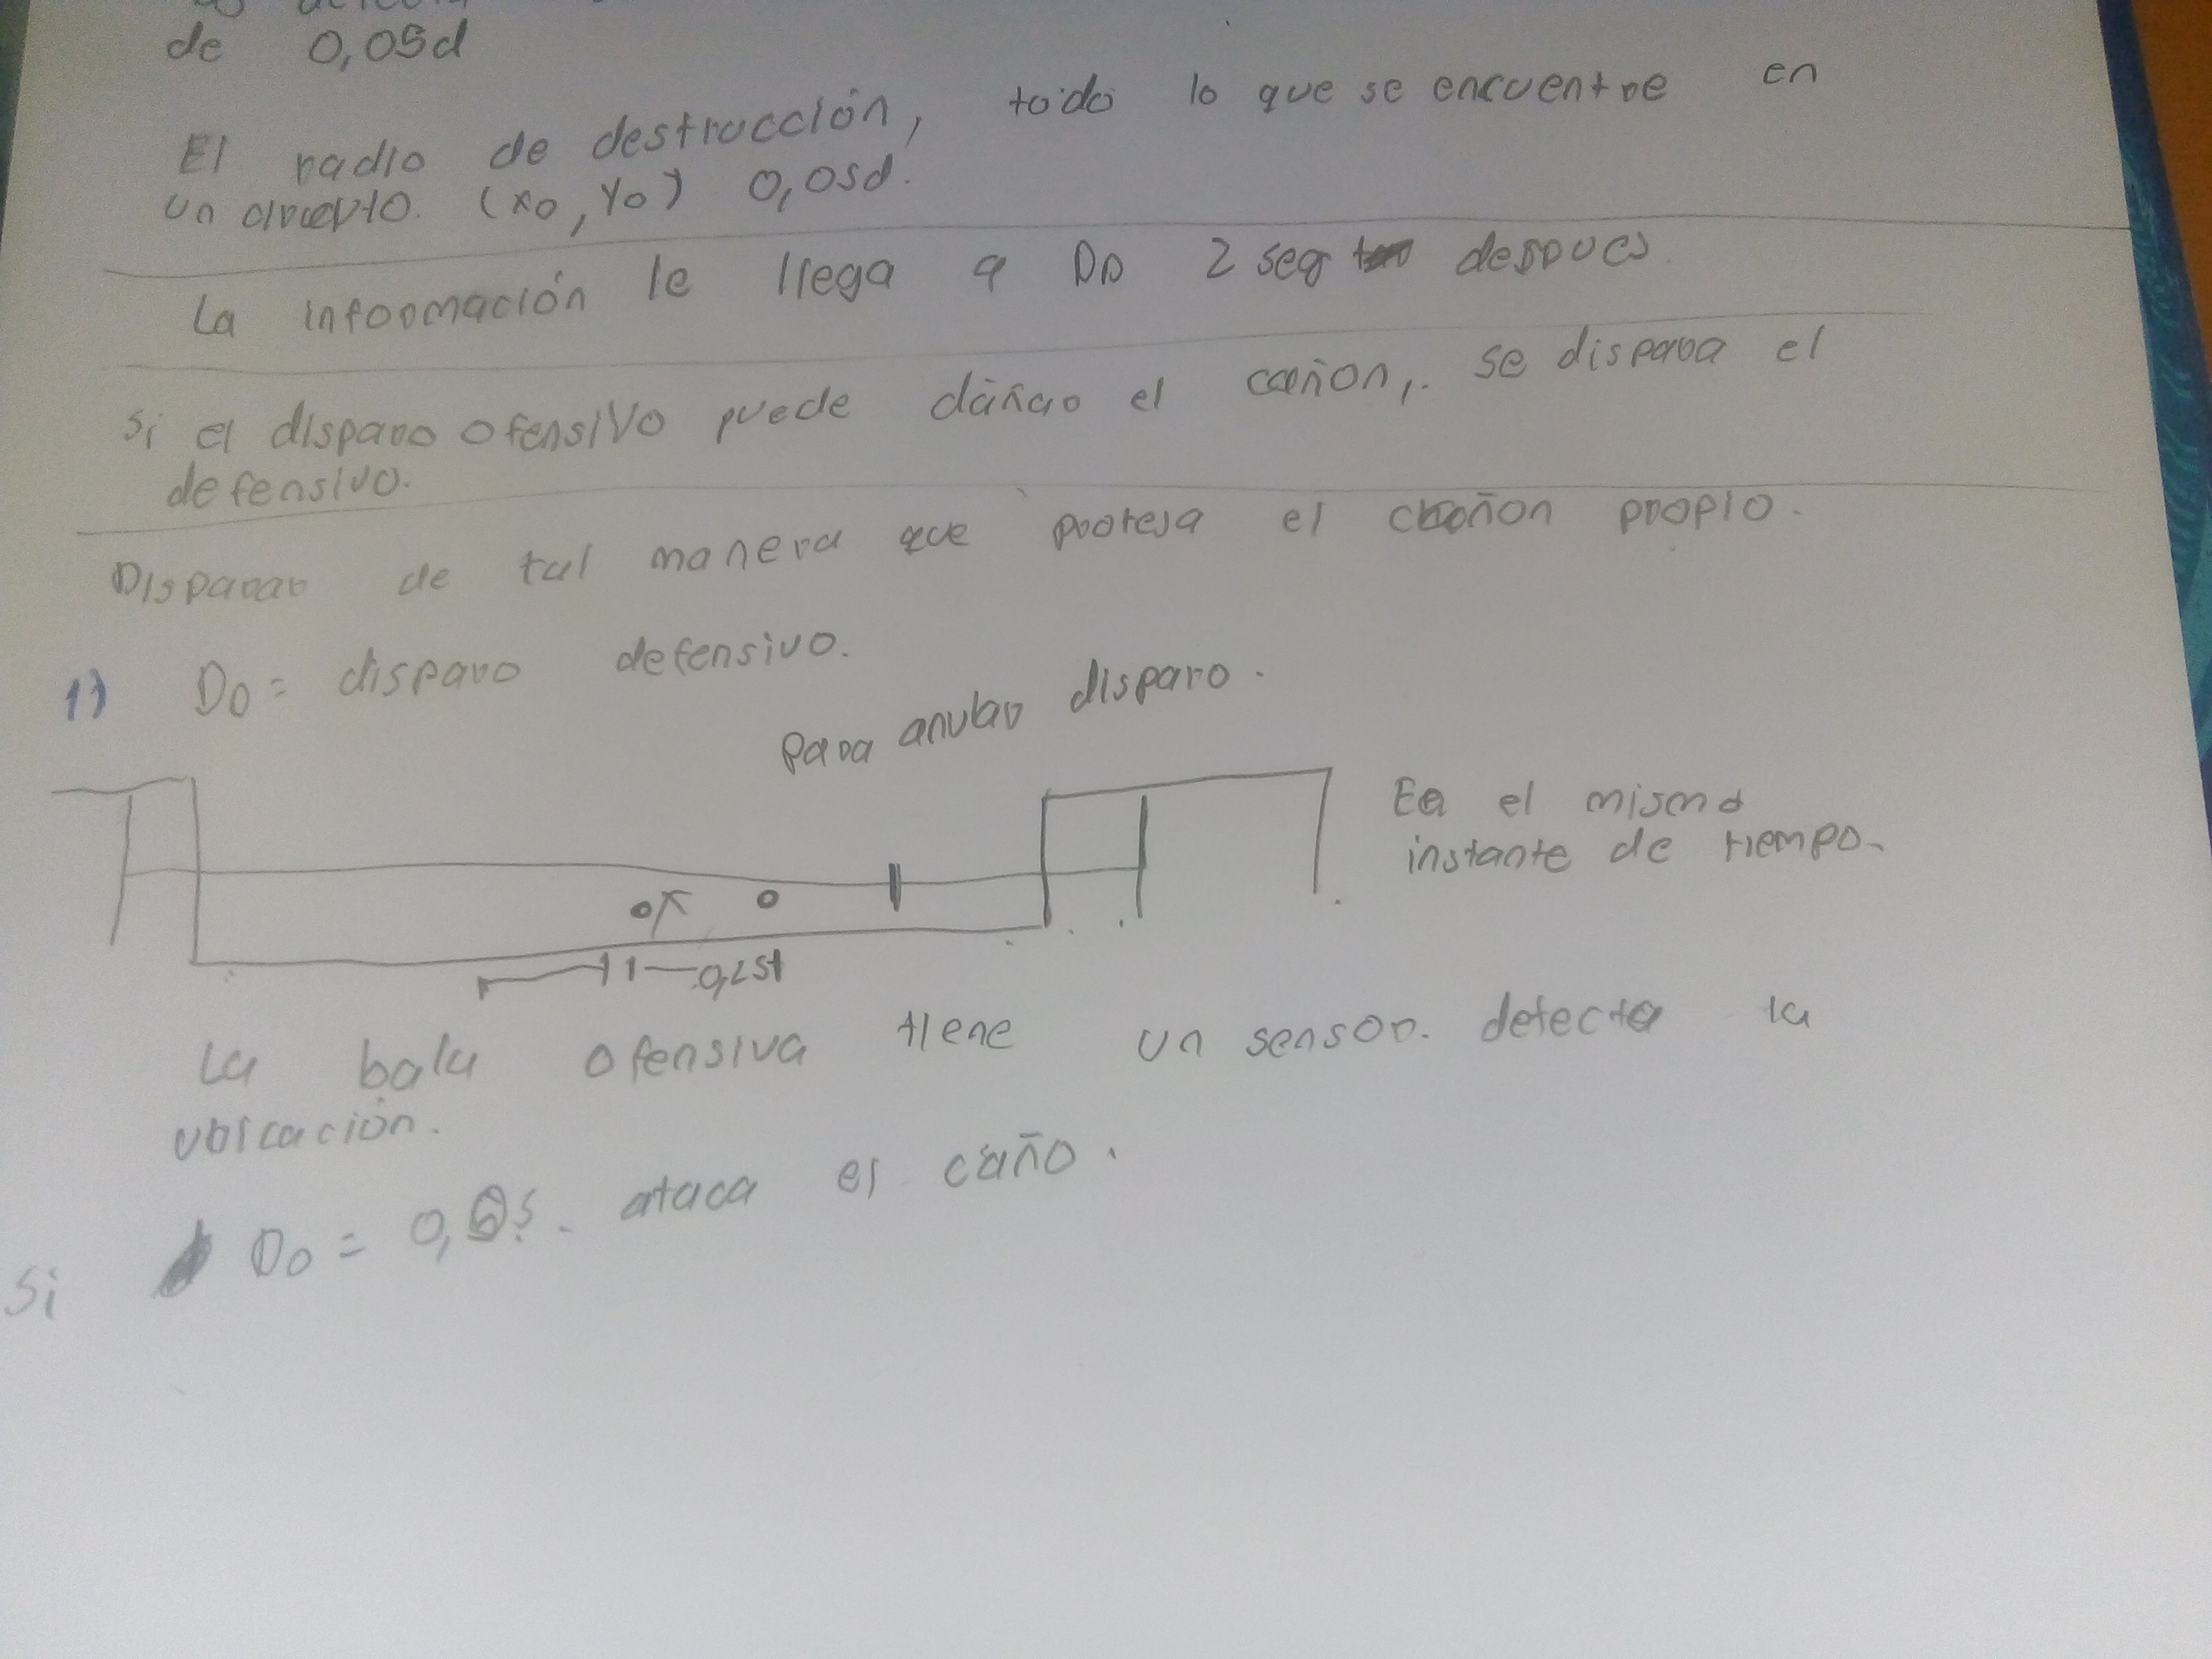 de 0,05d
El radio de destrucción, todo lo que se encuentre en
un (x0, y0) 0,05d.
La información le llega a DD 2 seg despues.
Si el disparo ofensivo puede dañar el cañon, se dispara el
defensivo.
Disparar de tal manera que proteja el cañon propio.
1) D0 = disparo defensivo.
Para anular disparo.
En el mismo
instante de tiempo.
La bala ofensiva tiene un sensor. detecta la
ubicación.
Si D0 = ataca el caño.